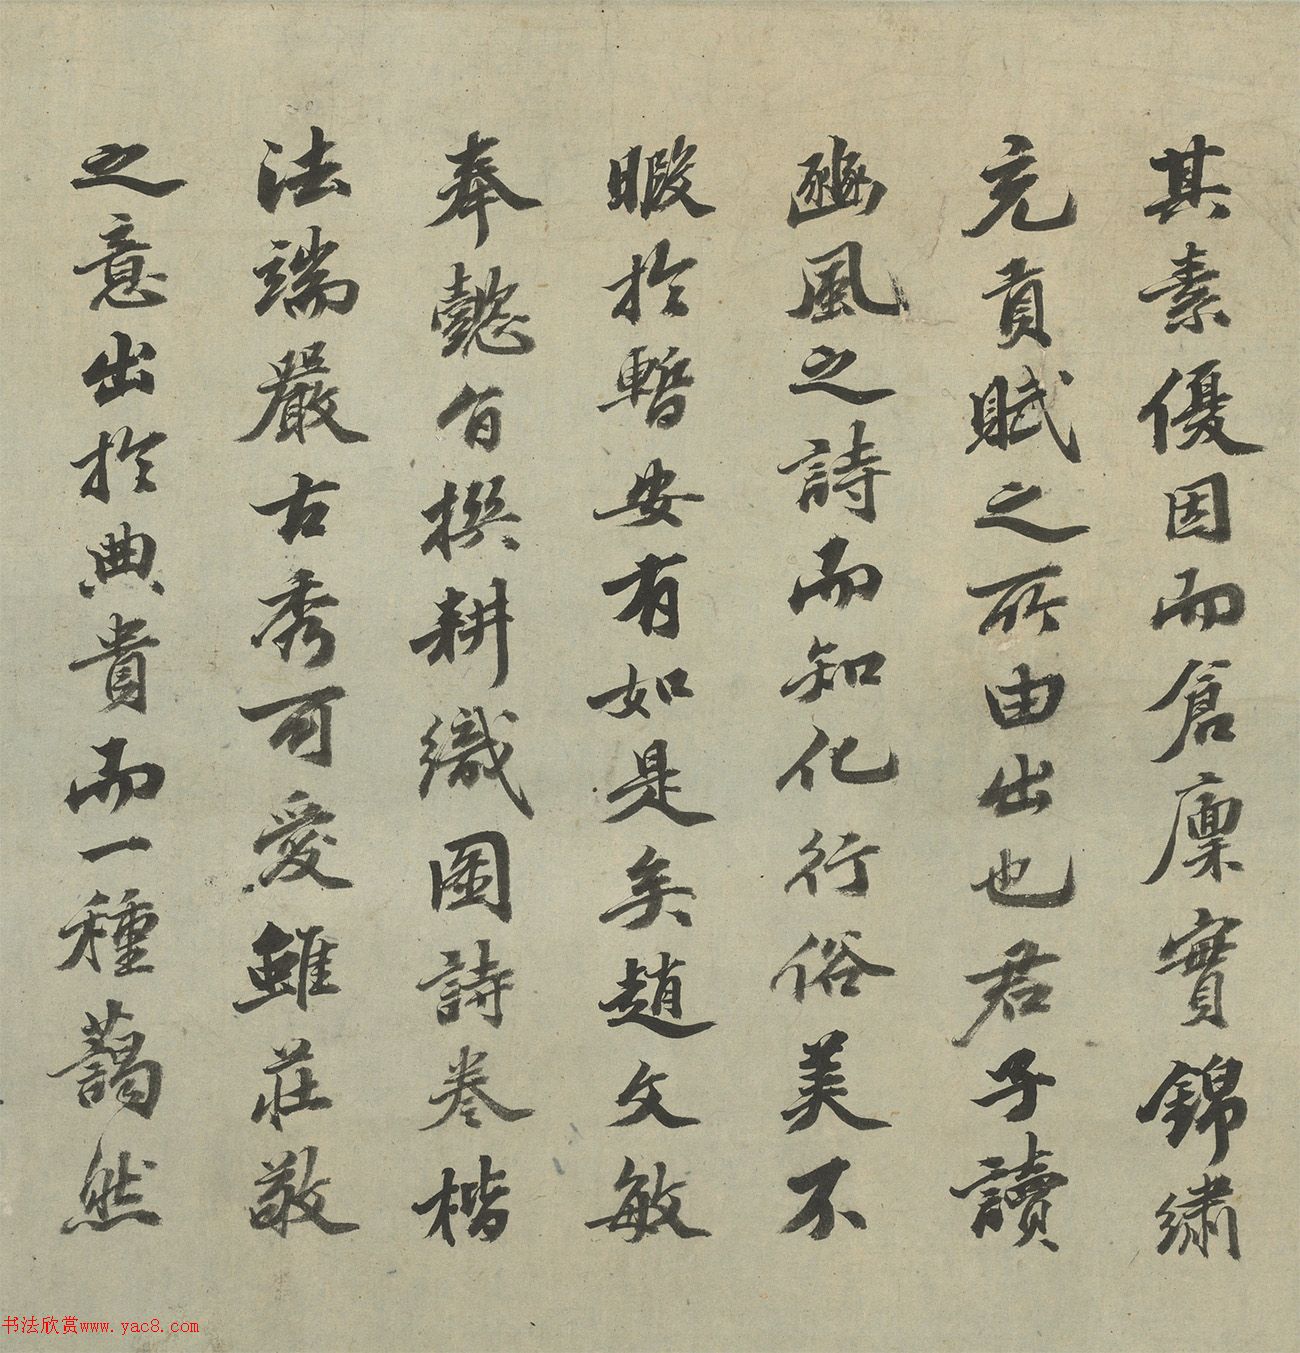 其素優因而倉廩實錦繡
充貢賦之所由出也君子讀
豳風之詩而知化行俗美不
暇於暫安有如是矣趙文敏
奉懿旨撰耕織圖詩卷楷
法端嚴古秀可愛雖莊敬
之意出於典貴而一種藹然
书法欣赏www.yac8.com